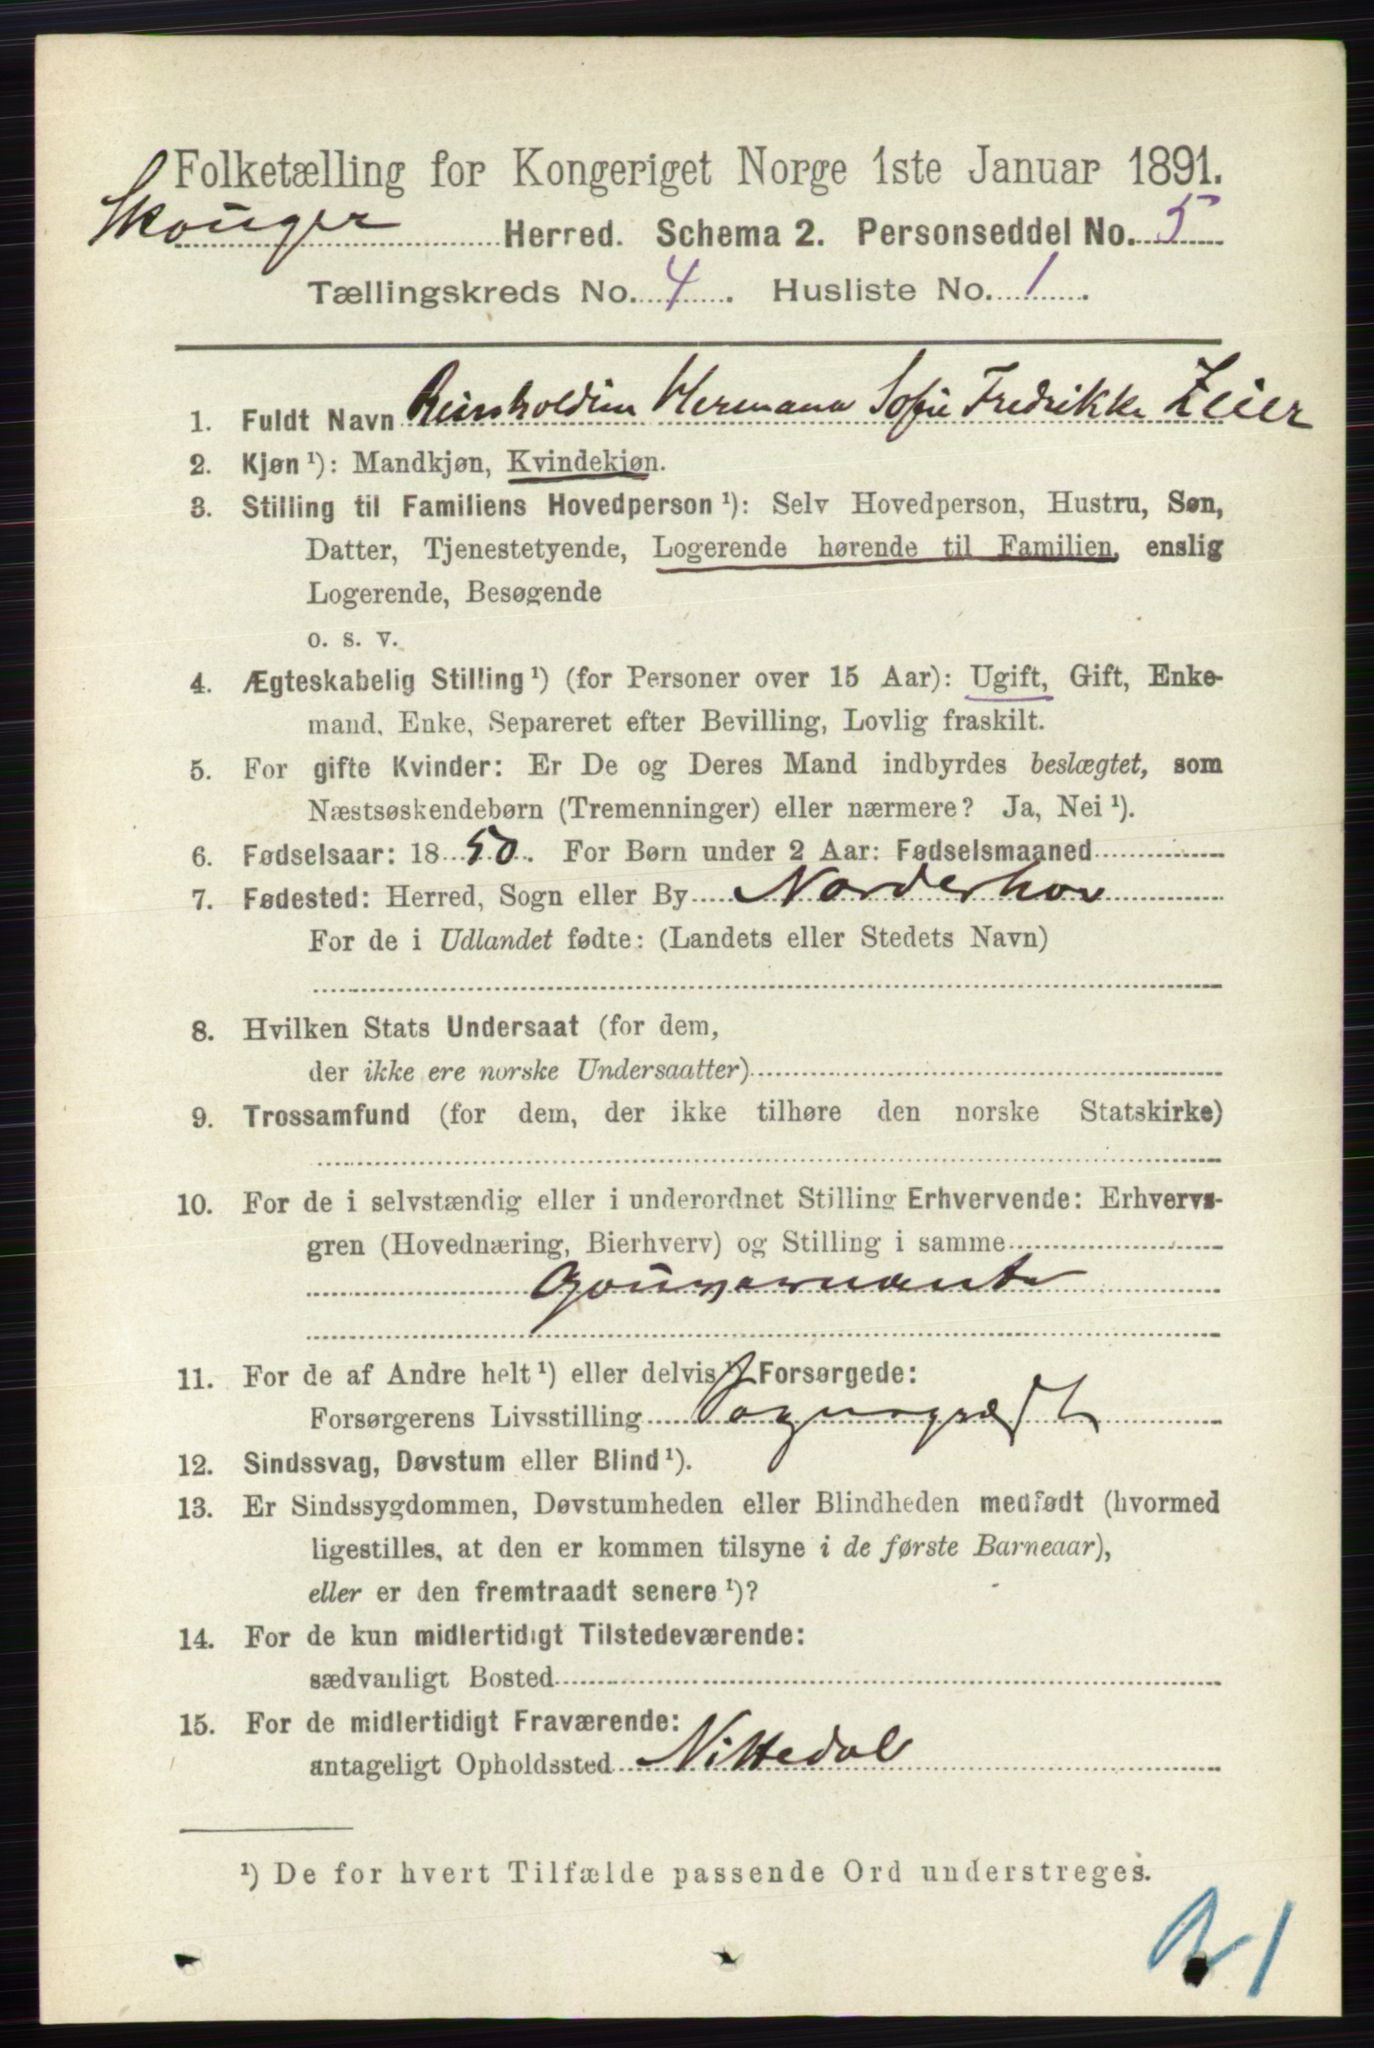 Folketælling for Kongeriget Norge 1ste Januar 1891.
Skouger Herred. Schema 2. Personseddel No. 5
Tællingskreds No. 4. Husliste No. 1.
1. Fuldt Navn Reinholdine Hermana Sofie Fredrikke Zeier
2. Kjøn ¹): Mandkjøn, Kvindekjøn.
3. Stilling til Familiens Hovedperson ¹): Selv Hovedperson, Hustru, Søn,
Datter, Tjenestetyende, Logerende hørende til Familien, enslig
Logerende, Besøgende
o. s. v.
4. Ægteskabelig Stilling ¹) (for Personer over 15 Aar): Ugift, Gift, Enke-
mand, Enke, Separeret efter Bevilling, Lovlig fraskilt.
5. For gifte Kvinder: Er De og Deres Mand indbyrdes beslægtet, som
Næstsøskendebørn (Tremenninger) eller nærmere? Ja, Nei ¹).
6. Fødselsaar: 1850. For Børn under 2 Aar: Fødselsmaaned
7. Fødested: Herred, Sogn eller By Norderhov
For de i Udlandet fødte: (Landets eller Stedets Navn)
8. Hvilken Stats Undersaat (for dem,
der ikke ere norske Undersaatter)
9. Trossamfund (for dem, der ikke tilhøre den norske Statskirke)
10. For de i selvstændig eller i underordnet Stilling Erhvervende: Erhvervs-
gren (Hovednæring, Bierhverv) og Stilling i samme
Gouvernante
11. For de af Andre helt ¹) eller delvis ¹) Forsørgede:
Forsørgerens Livsstilling Sognepræst
12. Sindssvag, Døvstum eller Blind ¹).
13. Er Sindssygdommen, Døvstumheden eller Blindheden medfødt (hvormed
ligestilles, at den er kommen tilsyne i de første Barneaar),
eller er den fremtraadt senere ¹)?
14. For de kun midlertidigt Tilstedeværende:
sædvanligt Bosted
15. For de midlertidigt Fraværende:
antageligt Opholdssted Nittedal
¹) De for hvert Tilfælde passende Ord understreges.